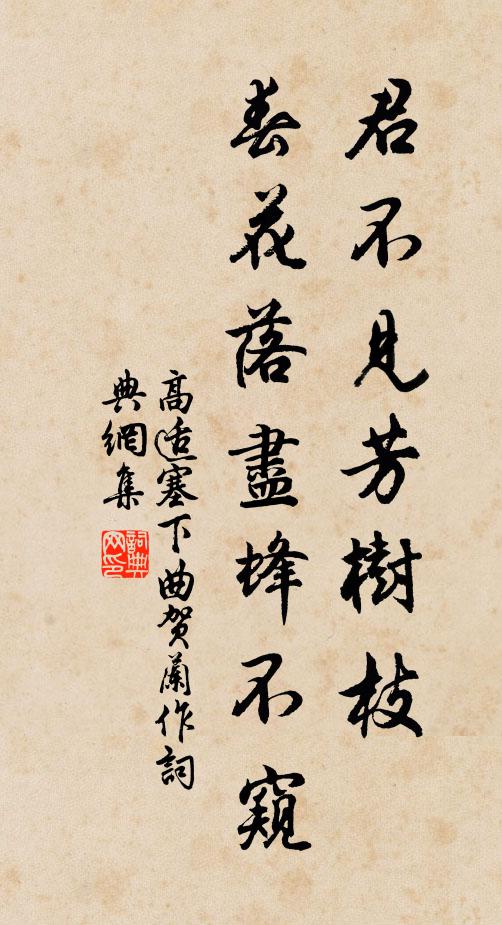 君不見芳樹枝
春花落盡蜂不窺
高适塞下曲賀蘭作詞
典網集
詞典
网印